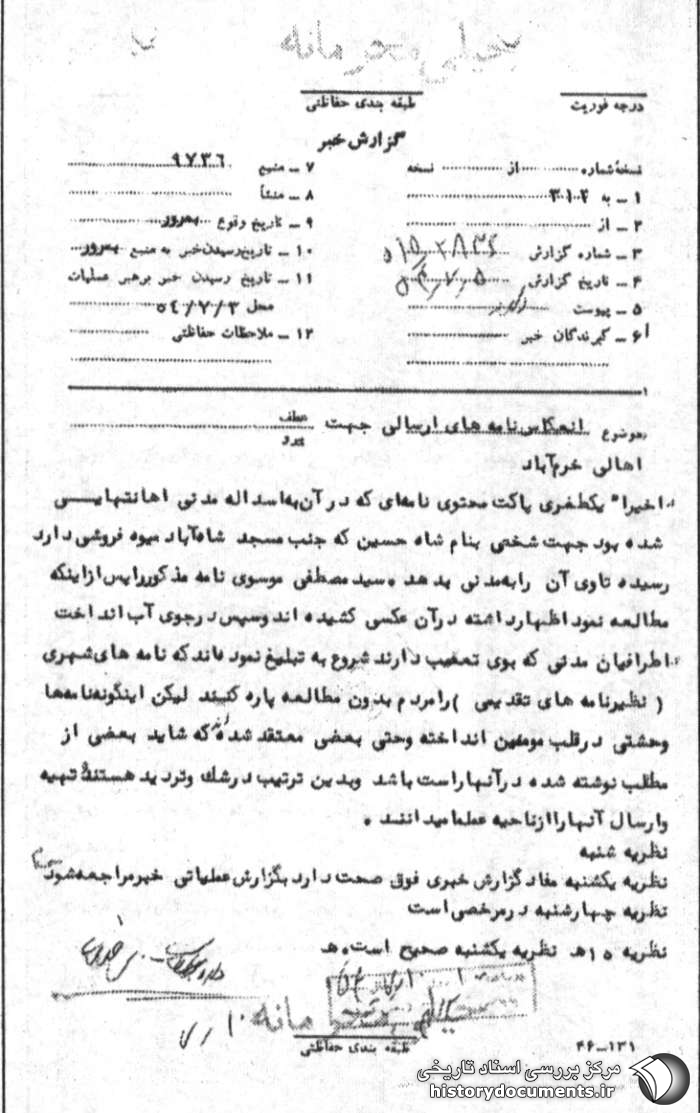 خیلی محرمانه
درجه فوریت
طبقه بندی حفاظتی
گزارش خبر
نسخهٔ شماره از نسخه
۱ ـ به ۳۰۱۲
۲ ـ از
۳ ـ شماره گزارش
۴ ـ تاریخ گزارش ۵ر۷ر۵۴
۵ ـ پیوست
۶ ـ گیرندگان خبر
۷ ـ منبع ۹۷۳۶
۸ ـ منشأ
۹ ـ تاریخ وقوع بمرور
۱۰ ـ تاریخ رسیدن خبر به منبع بمرور
۱۱ ـ تاریخ رسیدن خبر برهبر عملیات
محل ۵۴/۷/۳
۱۲ ـ ملاحظات حفاظتی
موضوع انعکاس نامه های ارسالی جهت
عطف
پیرو
اهالی خرم آباد
اخیرا" یکطغری پاکت محتوی نامه‌ای که در آن به اسداله مدنی اهانتهایی
شده بود جهت شخصی بنام شاه حسین که جنب مسجد شاه‌آباد میوه فروشی دارد
رسیده تاوی آن را به مدنی بدهد . سید مصطفی موسوی نامه مذکور را پس از اینکه
مطالعه نمود اظهار داشته در آن عکسی کشیده اند و سپس در جوی آب انداخت
اطرافیان مدنی که بوی تعصب دارند شروع به تبلیغ نموده‌اند که نامه های شهری
( نظیر نامه های تقدیمی ) را مردم بدون مطالعه پاره کنند لیکن اینگونه نامه‌ها
وحشتی در قلب مومنین انداخته وحتی بعضی معتقد شده اند که شاید بعضی از
مطلب نوشته شده در آنها راست باشد وبدین ترتیب در شک وتردید هستند و تهیه
وارسال آنها را از ناحیه علما میدانند .
نظریه شنبه
نظریه یکشنبه مفاد گزارش خبری فوق صحت دارد بگزارش عملیاتی خبر مراجعه شود
نظریه چهارشنبه در مرخصی است
نظریه ۱۵ هـ نظریه یکشنبه صحیح است . هـ
خیلی محرمانه
طبقه بندی حفاظتی
۱۳۱ـ۴۶
مرکز بررسی اسناد تاریخی
historydocuments.ir